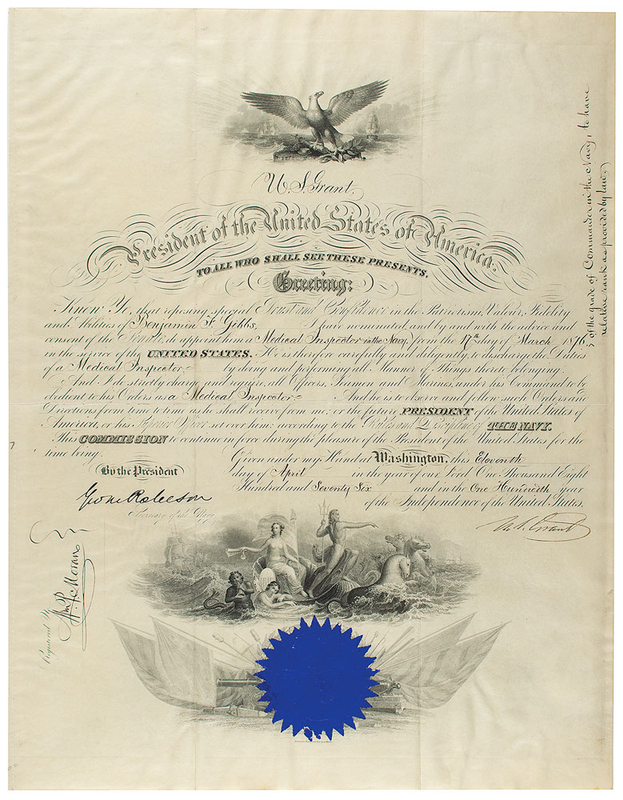 U. S. Grant.
President of the United States of America.
TO ALL WHO SHALL SEE THESE PRESENTS,
Greeting:
Know Ye, that reposing special Trust and Confidence in the Patriotism, Valour, Fidelity
and Abilities of Benjamin F. Gibbs, I have nominated, and by and with the advice and
consent of the Senate, do appoint him a Medical Inspector in the Navy, from the 17th day of March 1876,
in the service of the UNITED STATES. He is therefore carefully and diligently to discharge the Duties
of a Medical Inspector, by doing and performing all Manner of Things thereto belonging.
And I do strictly charge and require all Officers, Seamen and Marines, under his Command to be
obedient to his Orders as a Medical Inspector. And he is to observe and follow such Orders and
Directions from time to time as he shall receive from me, or the future PRESIDENT of the United States of
America, or his Superior Officer set over him, according to the Rules and Discipline of THE NAVY.
This COMMISSION to continue in force during the pleasure of the President of the United States for the
time being.
Given under my Hand at Washington, this Eleventh
day of April in the year of our Lord One Thousand Eight
Hundred and Seventy Six and in the One Hundredth year
of the Independence of the United States.
By the President
U. S. Grant
Geo. M. Robeson
Secretary of the Navy
Registered
of the grade of Commander in the Navy, to have
relative rank as provided by law